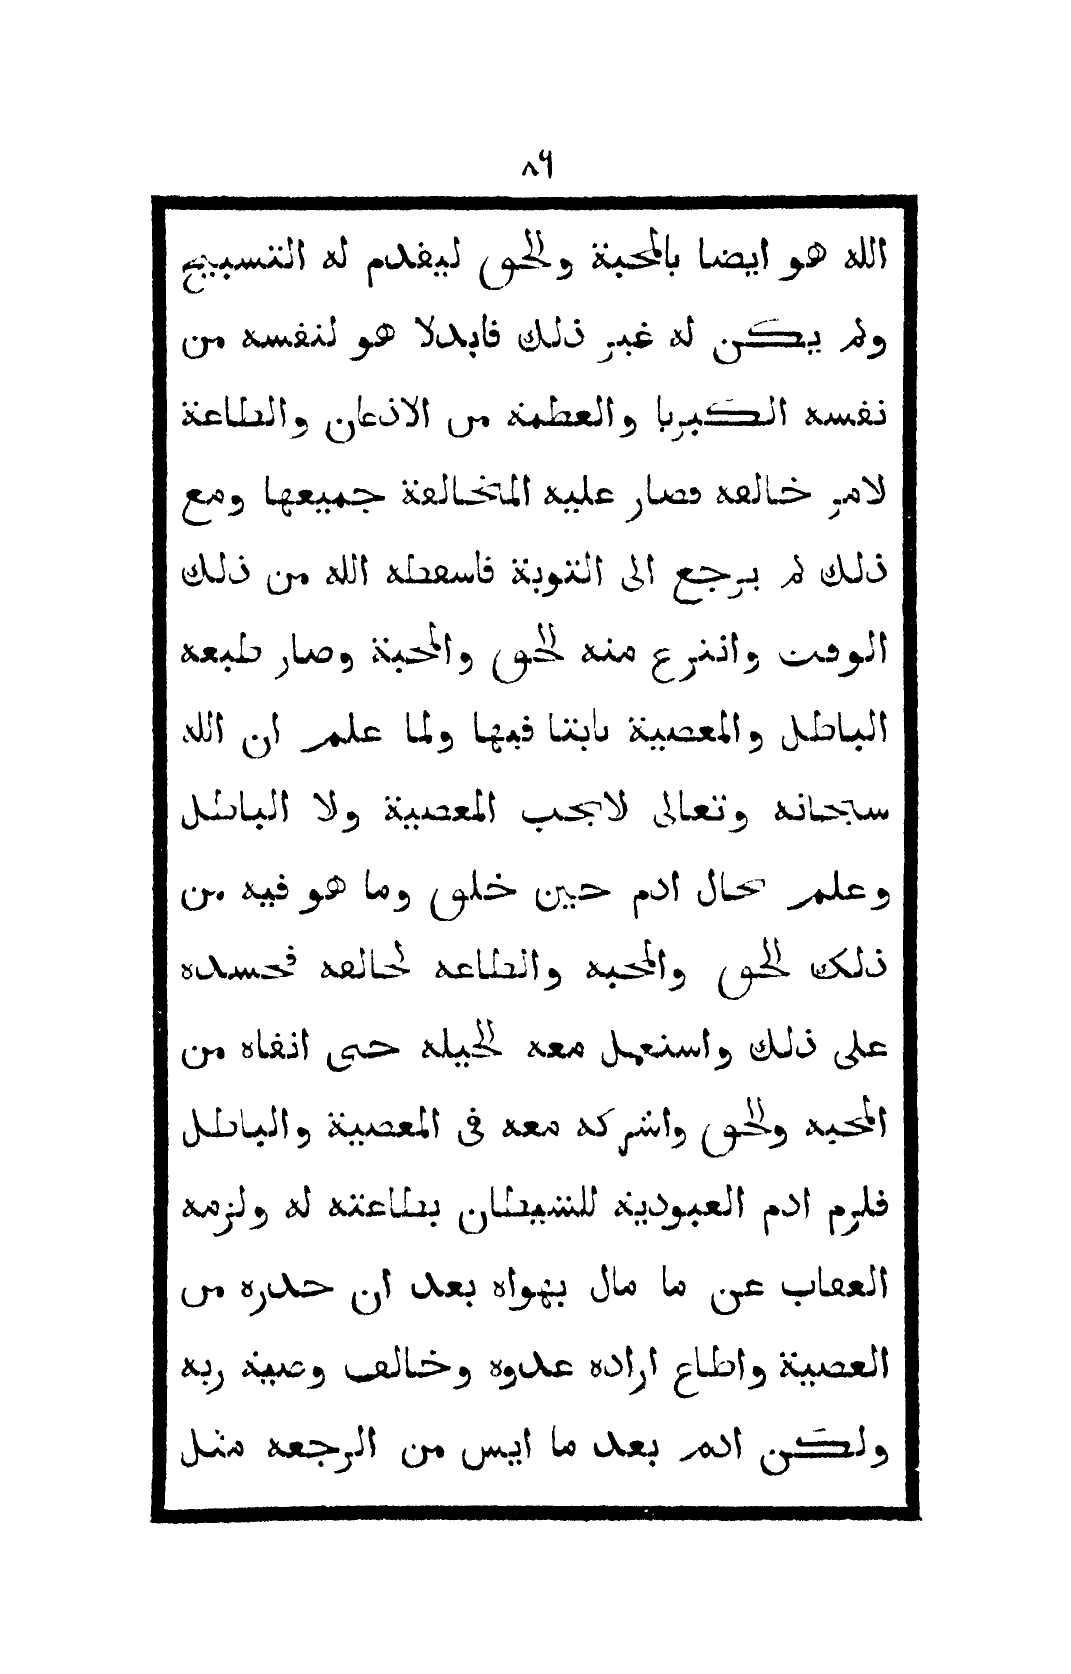 ٨٩
الله هو ايضا بالمحبة والحق ليقدم له التسبيح
ولم يكن له غير ذلك فابدلا هو لنفسه من
نفسه الكبريا والعظمة من الاذعان والطاعة
لامر خالقه فصار عليه المتخالفة جميعها ومع
ذلك لم يرجع الى التوبة فاسقطه الله من ذلك
الوقت وانترع منه لحق والمحبة وصار طبعه
الباطل والمعصية ثابتا فيها ولما علم ان الله
سبحانه وتعالى لايحب المعصية ولا الباطل
وعلم بحال ادم حين خلق وما هو فيه من
ذلك لحق والمحبه والطاعه لخالقه فحسده
على ذلك واستعمل معه لحيله حتى انفاه من
المحبه ولحق واشركه معه فى المعصية والباطل
فلزم ادم العبودية للشيطان بطاعته له ولزمه
العقاب عن ما مال بهواه بعد ان حدره من
العصية واطاع اراده عدوه وخالف وصية ربه
ولكن ادم بعد ما ايس من الرجعه مثل